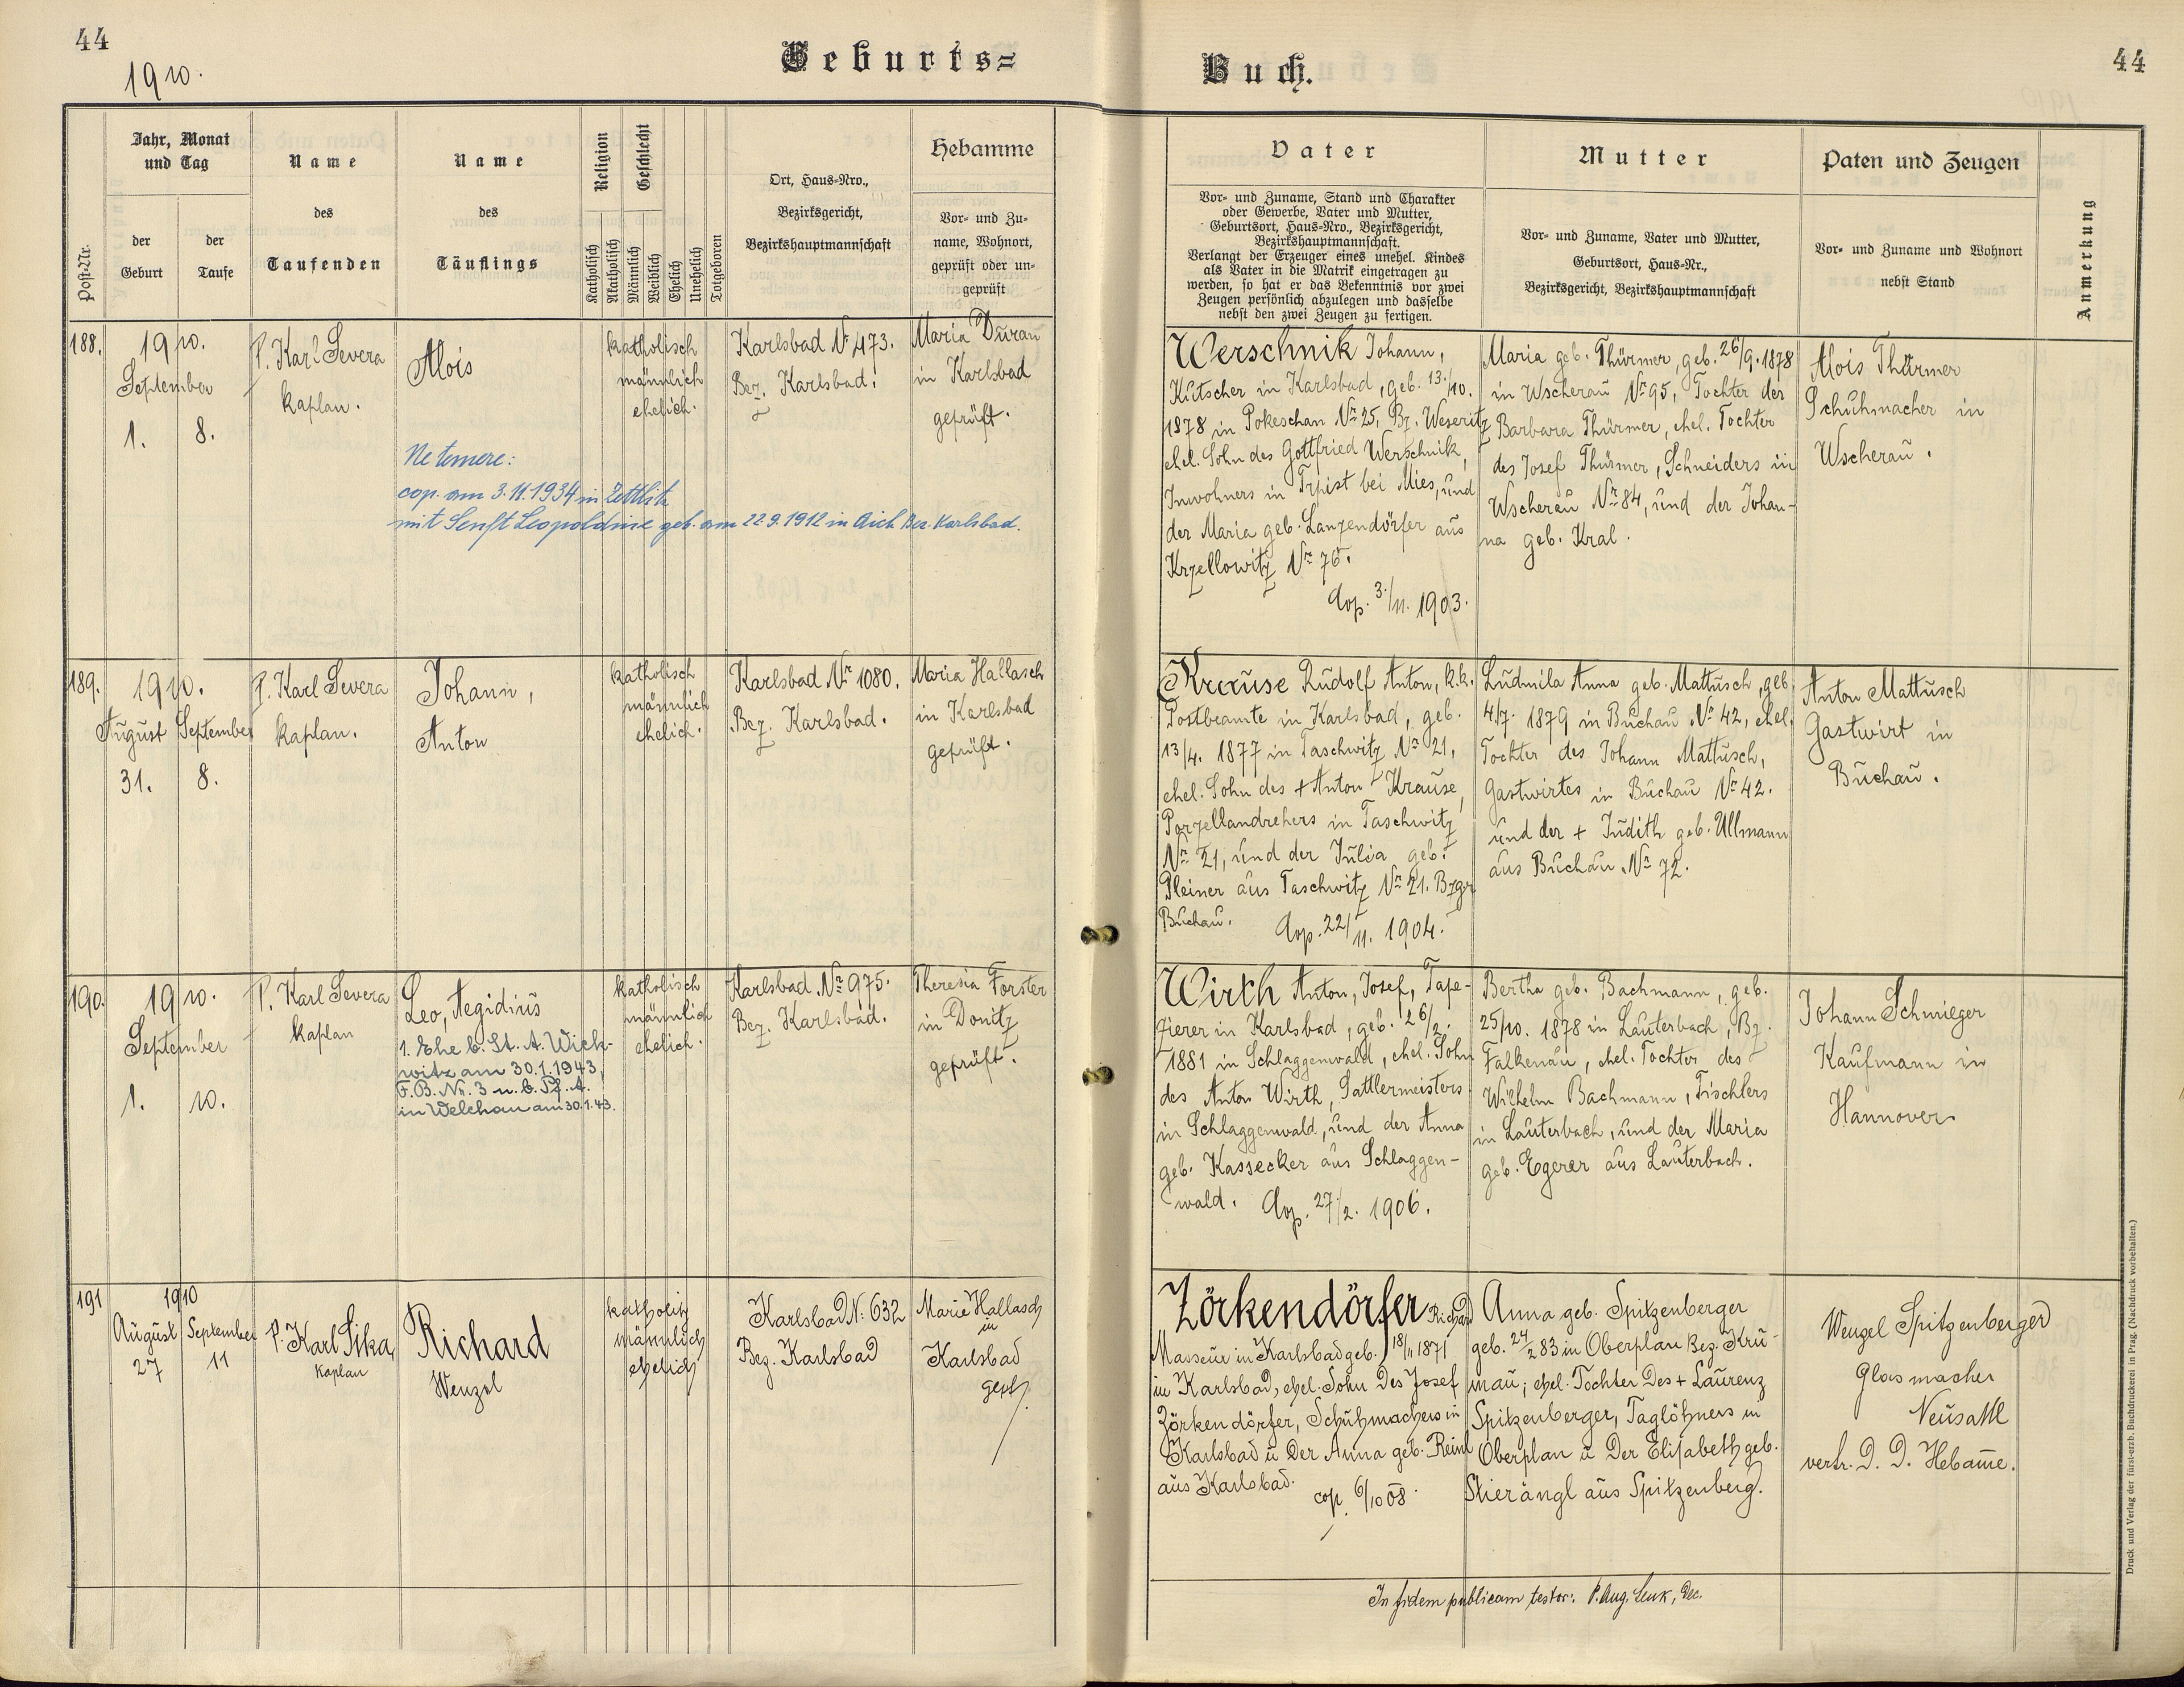 44
1910.
Geburts=
Post-Nr.
Jahr, Monat
und Tag
der
Geburt
der
Taufe
Name
des
Taufenden
Name
des
Täuflings
Religion
Geschlecht
Katholisch
Akatholisch
Männlich
Weiblich
Ehelich
Unehelich
Totgeboren
Ort, Haus-Nro.,
Bezirksgericht,
Bezirkshauptmannschaft
Hebamme
Vor- und Zu-
name, Wohnort,
geprüft oder un-
geprüft
188.
1910.
September
1. 8.
P. Karl Severa
Kaplan.
Alois
katholisch
männlich
ehelich.
Karlsbad Nr 473.
Bez. Karlsbad.
Maria Duran
in Karlsbad
geprüft.
Ne temere:
cop. am 3.11.1934 in Zettlitz
mit Senft Leopoldine geb. am 22.9.1912 in Aich Bez. Karlsbad.
189.
1910.
August September
31. 8.
P. Karl Severa
Kaplan.
Johann,
Anton
katholisch
männlich
ehelich.
Karlsbad Nr 1080.
Bez. Karlsbad.
Maria Hallasch
in Karlsbad
geprüft.
190.
1910.
September
1. 10.
P. Karl Severa
Kaplan
Leo, Aegidius
1. Ehe b. St. A. Wick-
witz am 30.1.1943,
F.B. Nr. 3 u. b. Pf. A.
in Welchau am 30.1.43.
katholisch
männlich
ehelich.
Karlsbad Nr 975.
Bez. Karlsbad.
Theresia Forster
in Donitz
geprüft.
191
1910
August September
27 11
P. Karl Sika,
Kaplan
Richard
Wenzel
katholisch
männlich
ehelich
Karlsbad N: 632
Bez. Karlsbad
Marie Hallasch
in
Karlsbad
gepr.
Buch.
44
Vater
Vor- und Zuname, Stand und Charakter
oder Gewerbe, Vater und Mutter,
Geburtsort, Haus-Nro., Bezirksgericht,
Bezirkshauptmannschaft.
Verlangt der Erzeuger eines unehel. Kindes
als Vater in die Matrik eingetragen zu
werden, so hat er das Bekenntnis vor zwei
Zeugen persönlich abzulegen und dasselbe
nebst den zwei Zeugen zu fertigen.
Mutter
Vor- und Zuname, Vater und Mutter,
Geburtsort, Haus-Nr.,
Bezirksgericht, Bezirkshauptmannschaft
Paten und Zeugen
Vor- und Zuname und Wohnort
nebst Stand
Anmerkung
Werschnik Johann,
Kutscher in Karlsbad, geb. 13./10.
1878 in Pokeschan Nr 25, Bz. Weseritz
ehel. Sohn des Gottfried Werschnik,
Inwohners in Trpist bei Mies, und
der Maria geb. Lanzendörfer aus
Krzellowitz Nr 76.
Cop. 3./11. 1903.
Maria geb. Thürmer, geb. 26/9. 1878
in Wscherau Nr 95, Tochter der
Barbara Thürmer, ehel. Tochter
des Josef Thürmer, Schneiders in
Wscherau Nr 84, und der Johan-
na geb. Kral.
Alois Thürmer
Schuhmacher in
Wscherau.
Krause Rudolf Anton, k.k.
Postbeamte in Karlsbad, geb.
13/4. 1877 in Taschwitz Nr 21,
ehel. Sohn des + Anton Krause,
Porzellandrehers in Taschwitz
Nr 21, und der Julia geb.
Pleiner aus Taschwitz Nr 21. Bzger
Buchau. Cop. 22/11. 1904.
Ludmila Anna geb. Mattusch, geb.
4/7. 1879 in Buchau Nr 42, ehel.
Tochter des Johann Mattusch,
Gastwirtes in Buchau Nr 42.
und der + Judith geb. Ullmann
aus Buchau Nr 72.
Anton Mattusch
Gastwirt in
Buchau.
Wirth Anton, Josef, Tape-
zierer in Karlsbad, geb. 26/2.
1881 in Schlaggenwald, ehel. Sohn
des Anton Wirth, Sattlermeisters
in Schlaggenwald, und der Anna
geb. Kassecker aus Schlaggen-
wald. Cop. 27/2. 1906.
Bertha geb. Bachmann, geb.
25/10. 1878 in Lauterbach, Bz.
Falkenau, ehel. Tochter des
Wilhelm Bachmann, Tischlers
in Lauterbach, und der Maria
geb. Egerer aus Lauterbach.
Johann Schwieger
Kaufmann in
Hannover
Zörkendörfer Richard
Masseur in Karlsbad geb. 18/11 1871
in Karlsbad, ehel. Sohn des Josef
Zörkendörfer, Schuhmachers in
Karlsbad u der Anna geb. Reinl
aus Karlsbad. cop. 6/10 08.
Anna geb. Spitzenberger
geb. 24/2 83 in Oberplan Bez. Kru-
mau; ehel. Tochter des + Laurenz
Spitzenberger, Taglöhners in
Oberplan u der Elisabeth geb.
Stierangl aus Spitzenberg.
Wenzel Spitzenberger
Glasmacher
Neusattl
vertr. d. d. Hebamme.
In fidem publicam testor: P. Aug. Lenk, Dec.
Druck und Verlag der fürst-erzb. Buchdruckerei in Prag. (Nachdruck vorbehalten.)